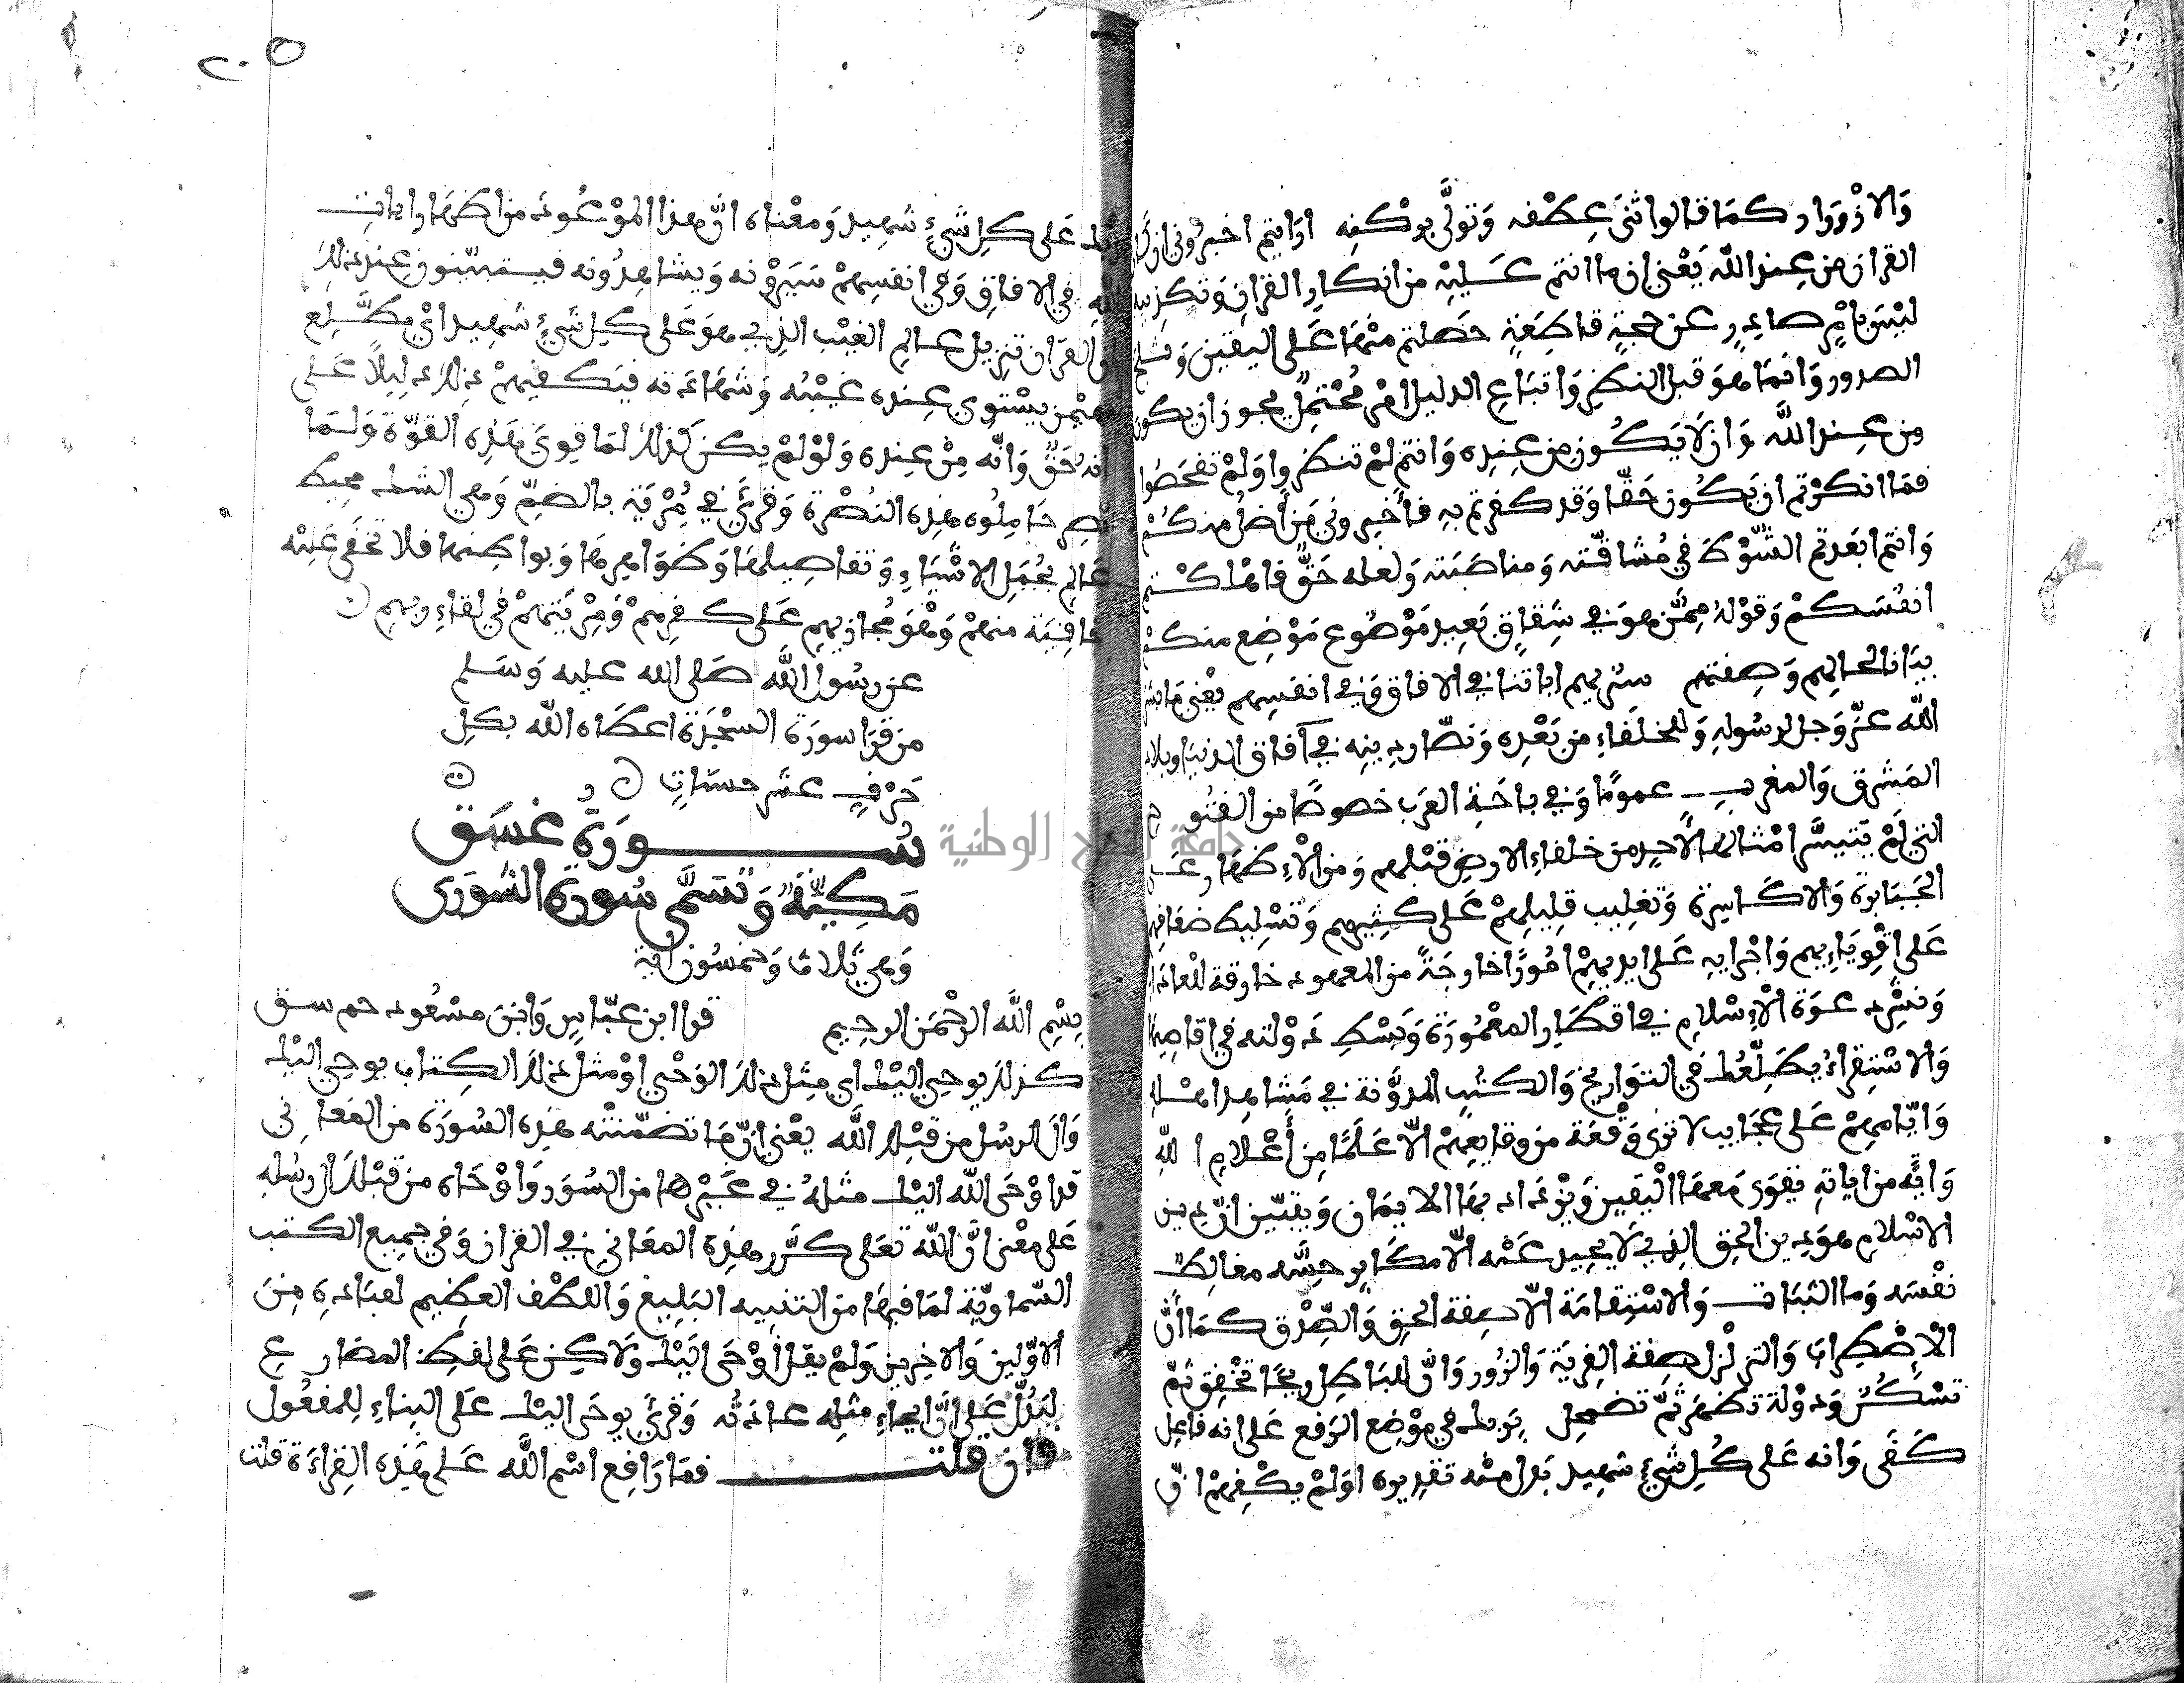 وَالازْوِرَار كمَا قالوا ثنَى عِطْفه وَتولَّى بركنِه ارَايتم اخبرُوني ان كَان
القران مِن عِند اللَّه يَعْني ان ما انتم عَليْهِ من انكارِ القرانِ وَتكذيبه
ليْسَ بامْرٍ صادِرٍ عن حجةٍ قاطِعَةٍ حصَلتم منْهَا عَلى اليقين وَثلج
الصدور وَانمَا هوَ قبل النظرِ وَاتبَاعِ الدليل امْر مُحْتمِلٌ يجوز ان يكون
مِن عِند اللَّه وَان لَا يَكُون مِن عِندِه وَانتم لمْ تنظروا وَلمْ تفحَصُوا
فمَا انكرْتم ان يَكُون حَقّا وَقد كفرتم بهِ فأخبروني مَن أضل منكُمْ
وَانتم ابعَدتم الشَّوْطَ في مُشاقّته وَمناصَبته وَلعله حَقٌّ فاهْلكْتم
انفُسَكمْ وَقوْلهُ مِمَّن هوَ في شِقاقٍ بَعِيد مَوْضُوع مَوْضِع منكمْ
بيَانا لحالِهم وَصِفتهم سنريهم اياتنا في الافاق وَفي انفسِهم يعْني مَا يسَّر
اللّه عزّ وَجل لرسُولِهِ وَللخلفَاءِ من بَعْدِه وَنصّار دِينِه في آفاق الدنيَا وبلاد
المَشرق وَالمغرب عمومًا وَفي باحَةِ العرَب خصوصًا من الفتُوح
التي لَمْ يَتيسَّر امْثالهَا لأحدٍ من خلفاءِ الارض قبْلهم وَمن الْاِظهَار عَلى
الجَبَابرة وَالاكَاسِرة وَتغلِيب قلِيلِهمْ عَلى كثِيرِهم وَتسْلِيط ضعَافِهم
عَلى اقْوِيَاءِيهم وَاجْرايهِ عَلى ايديهمْ امُورًا خارجَةً من المعهود خارقة للعادَة
وَنشْرِ دعوَة الْاِسْلامِ في اقطَار المعْمُورَة وَبَسْطِ دَوْلته في اقاصِيهَا
وَالاسْتِقراءُ يطَلِّعُك في التوَاريخ وَالكتُب المدوَّنة في مَشاهِد اهله
وَايّامِهِمْ عَلى عجَايب لا ترى وَقْعَة من وقايعِهمْ الّا عَلمًا مِن أعْلامِ اللهِ
وَايَةً من اياتهِ يقوَى مَعهَا الْيقين وَيزْدَاد بهَا الايمَان وَيتبيّن انّ دين
الاسْلامِ هوَ دين الحقِ الذِي لَا يحِيد عَنْه الّا مكَابِر حِسَّه مغالِط
نفْسَه وَما الثبَات وَالاسْتِقامَة الّا صِفة الحقِ وَالصِّدْق كمَا أنَّ
الْاِضْطِرابَ وَالتزلْزل صِفة الفِريَة وَالزُّور وَانَّ للبَاطِل رِيحًا تخْفِق ثمّ
تسْكُن وَدوْلة تظهَر ثمّ تضمحِل بِرَبك في مَوْضِع الرَفع عَلى انه فاعِل
كَفَى وَانه عَلى كُلِ شَيْءٍ شهِيد بَدل منْه تقدِيره اوَلمْ يكْفِهمْ انّ
رَبك عَلى كلِ شَيْءٍ شهِيد وَمعْناه انَّ هذا الموْعُودَ من اظهَار ايات
اللّهِ في الافاقِ وَفي انفسِهمْ سَيَرَوْنه وَيشاهِدُونه فيتبيّنون عِند ذلك
انّ القرَان تنزيل عالِمِ الغيْب الذِي هوَ عَلى كلِ شَيْءٍ شهِيد ايْ مطَّلِع
مهيْمِن يسْتوِي عِنده غيْبُه وَشهَادَته فيَكفِيهمْ ذلك دلِيلًا عَلى
انهُ حَقٌّ وَانَّه مِنْ عِنده وَلوْ لمْ يكن كذلك لمَا قوِيَ هَذِه القوّة وَلمَا
نُصِرَ حَامِلُوه هذِه النُصْرة وَقرِئَ في مُرْيَة بالضمِّ وَهي الشك محيط
عَالِم بجُمَلِ الاشْيَاءِ وَتفاصِيلهَا وَظوَاهِرِهَا وَبواطِنهَا فلا تخفَى عَليْه
خافِيَة منهمْ وَهْوَ مُجَازيهم عَلى كفرِهمْ وَمِرْيَتهمْ في لقاءِ ربهم
عن رسُول اللَّه صَلى الله عليه وَسَلم
من قرَا سورَة السجْدَة اعطَاه اللّه بكلِ
حَرْفٍ عشر حسنَاتٍ
سُورَة عٓسَقٓ
مَكِيَّةٌ وَتسَمَّى سُورَة الشورَى
وَهي ثلاث وَخمسُون اية
بِسْمِ اللَّه الرحْمَن الرحِيم قرا ابن عبّاسٍ وَابن مسْعُود حم سق
كذلك يوحِي اليْك اي مِثل ذلك الوَحْي اوْ مثل ذلك الكِتاب يوحِي اليْك
وَالَى الرسُل من قبْلِك اللَّه يعْني انّ مَا تضمّنتْه هذِه السُورَة من المَعاني
قد اوْحَى اللّه اليْك مثلهُ في غَيْرِها من السُوَر وَاوْحَاه من قبْلك الى رسُلهِ
عَلى معْنى انَّ اللّه تعَلى كرَّر هذِه المعَاني في القران وَفي جميع الكتب
السّماويّة لمَا فيهَا من التنبيه البَلِيغ وَاللطْف العظِيم لعبَادِهِ مِنَ
الاوّلين وَالاخِرين وَلمْ يقل أوْحَى اليْك وَلاكِن عَلى لفظِ المضارِعِ
ليَدُلَّ عَلى انَّ ايحَاءِ مثلِه عادَتُه وَقرِئَ يوحَى اليْك عَلى البِناءِ للِمفعُول
فان قلت فمَا رَافِع اسْم اللَّه عَلى هَذِه القِراءَة قلت
٢٠٥
جامعة النجاح الوطنية